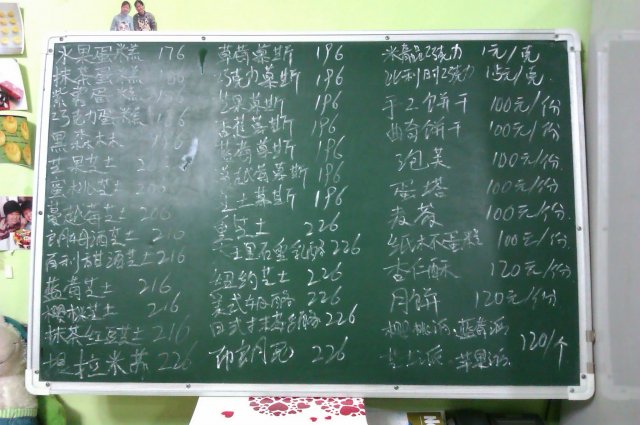 水果蛋糕 176
抹茶蛋糕
紫薯蛋糕
巧克力蛋糕 196
黑森林 196
芒果芝士
蜜桃芝士
蔓越莓芝士 206
朗姆酒芝士 216
百利甜酒芝士 216
蓝莓芝士 216
樱桃芝士 216
抹茶红豆芝士 216
提拉米苏 226
草莓慕斯 196
巧克力慕斯 196
芒果慕斯 196
慕斯 196
蓝莓慕斯 196
慕斯 196
芝士慕斯 196
重芝士 226
大理石重乳酪 226
纽约芝士 226
美式乳酪 226
日式抹茶乳酪 226
226
巧克力 1元/克
比利时巧克力 1.5元/克
手工饼干 100元/份
曲奇饼干 100元/份
泡芙 100元/份
蛋塔 100元/份
麦芬 100元/份
纸杯蛋糕 100元/份
杏仁酥 120元/份
月饼 120元/份
樱桃派 蓝莓派
苹果派 120/个